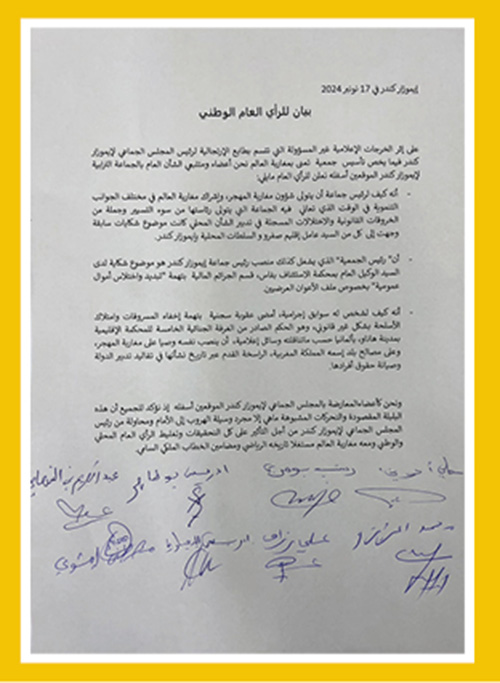 إيموزار كندر في 17 نونبر 2024
بيان للرأي العام الوطني
على إثر الخرجات الإعلامية غير المسؤولة التي تتسم بطابع الإرتجالية لرئيس المجلس الجماعي لإيموزار
كندر فيما يخص تأسيس جمعية تعنى بمغاربة العالم نحن أعضاء ومتتبعي الشأن العام بالجماعة الترابية
لإيموزار كندر الموقعين أسفله نعلن للرأي العام مايلي:
- أنه كيف لرئيس جماعة أن يتولى شؤون مغاربة المهجر، وإشراك مغاربة العالم في مختلف الجوانب
التنموية في الوقت الذي تعاني فيه الجماعة التي يتولى رئاستها من سوء التسيير وجملة من
الخروقات القانونية والاختلالات المسجلة في تدبير الشأن المحلي كانت موضوع شكايات سابقة
وجهت إلى كل من السيد عامل إقليم صفرو و السلطات المحلية بإيموزار كندر.
- أن" رئيس الجمعية" الذي يشغل كذلك منصب رئيس جماعة إيموزار كندر هو موضوع شكاية لدى
السيد الوكيل العام بمحكمة الاستئناف بفاس، قسم الجرائم المالية بتهمة "تبديد واختلاس أموال
عمومية" بخصوص ملف الأعوان العرضيين.
- أنه كيف لشخص له سوابق إجرامية، أمضى عقوبة سجنية بتهمة إخفاء المسروقات وامتلاك
الأسلحة بشكل غير قانوني، وهو الحكم الصادر من الغرفة الجنائية الخامسة للمحكمة الإقليمية
بمدينة هاناو، بألمانيا حسب ماتناقلته وسائل إعلامية، أن ينصب نفسه وصيا على مغاربة المهجر،
وعلى مصالح بلد إسمه المملكة المغربية، الراسخة القدم عبر تاريخ نشأتها في تقاليد تدبير الدولة
وصيانة حقوق أفرادها.
ونحن كأعضاء المعارضة بالمجلس الجماعي لإيموزار كندر الموقعين أسفله إذ نؤكد للجميع أن هذه
البلبلة المقصودة والتحركات المشبوهة ماهي إلا مجرد وسيلة الهروب إلى الأمام ومحاولة من رئيس
المجلس الجماعي لإيموزار كندر من أجل التأثير على كل التحقيقات وتغليط الرأي العام المحلي
والوطني ومعه مغاربة العالم مستغلا تاريخه الرياضي ومضامين الخطاب الملكي السامي.